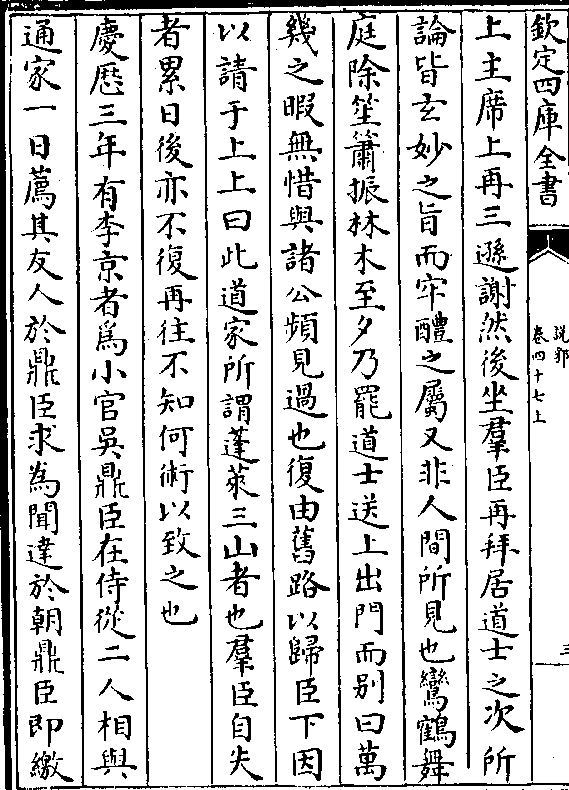 欽定四庫全書
說郛
卷四十七上
三
上主席上再三遜謝然後坐羣臣再拜居道士之次所
論皆玄妙之旨而牢醴之屬又非人間所見也鸞鶴舞
庭除笙簫振林木至夕乃罷道士送上出門而别曰萬
幾之暇無惜與諸公頻見過也復由舊路以歸臣下因
以請于上上曰此道家所謂蓬萊三山者也羣臣自失
者累日後亦不復再往不知何術以致之也
慶厯三年有李京者爲小官吳鼎臣在侍從二人相與
通家一日薦其友人於鼎臣求為聞達於朝鼎臣即繳